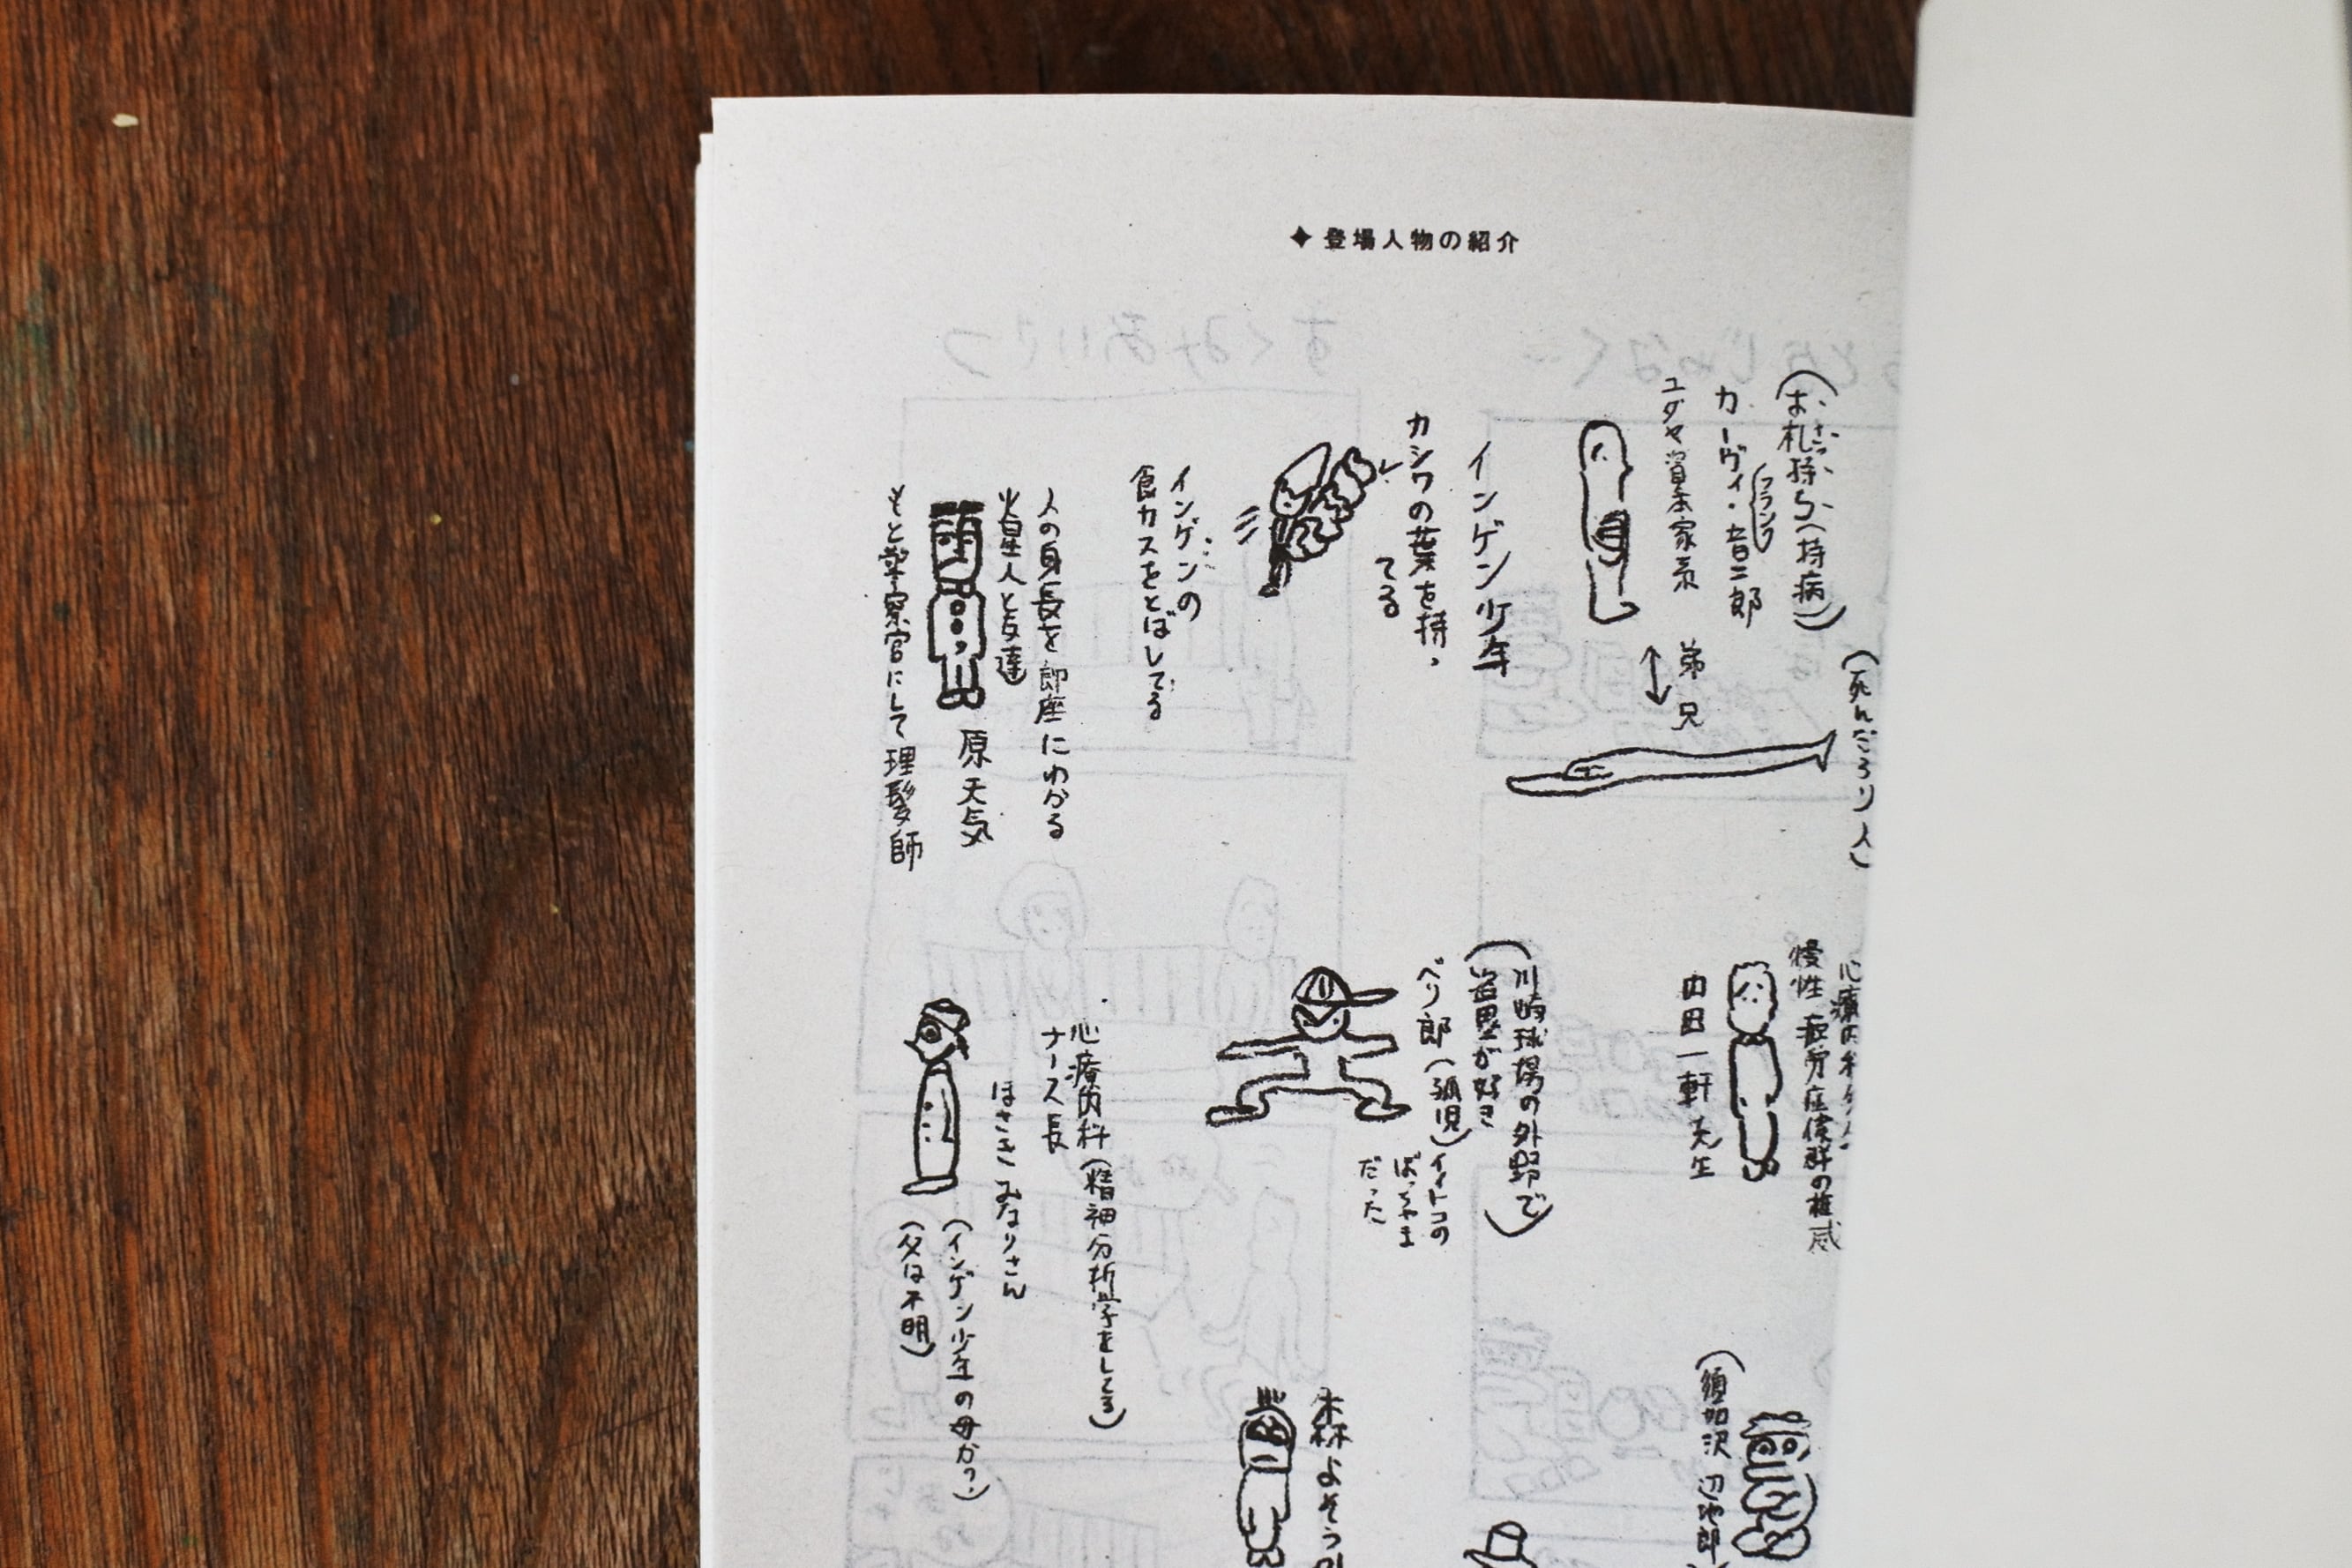 ✦登場人物の紹介
(死んだろり人)
(お札持ち(持病))
カーヴィ・音二郎
フランク
ユダヤ資本家系
弟
兄
インゲン少年
カシワの葉を持っ
てる
インゲンの
食カスをとばしてる
人の身長を即座にわかる
火星人と友達
原天気
もと警察官にして理髪師
慢性疲労症候群の権威
内田一軒先生
川崎球場の外野で
岩黒が好き
ペリ郎(孤児)
イイトコの
ぼっちゃま
だった
心療内科(精神分析学をしてる)
ナース長
ほさきみなりさん
(インゲン少年の母か?)
(父は不明)
須加沢
木林よそう